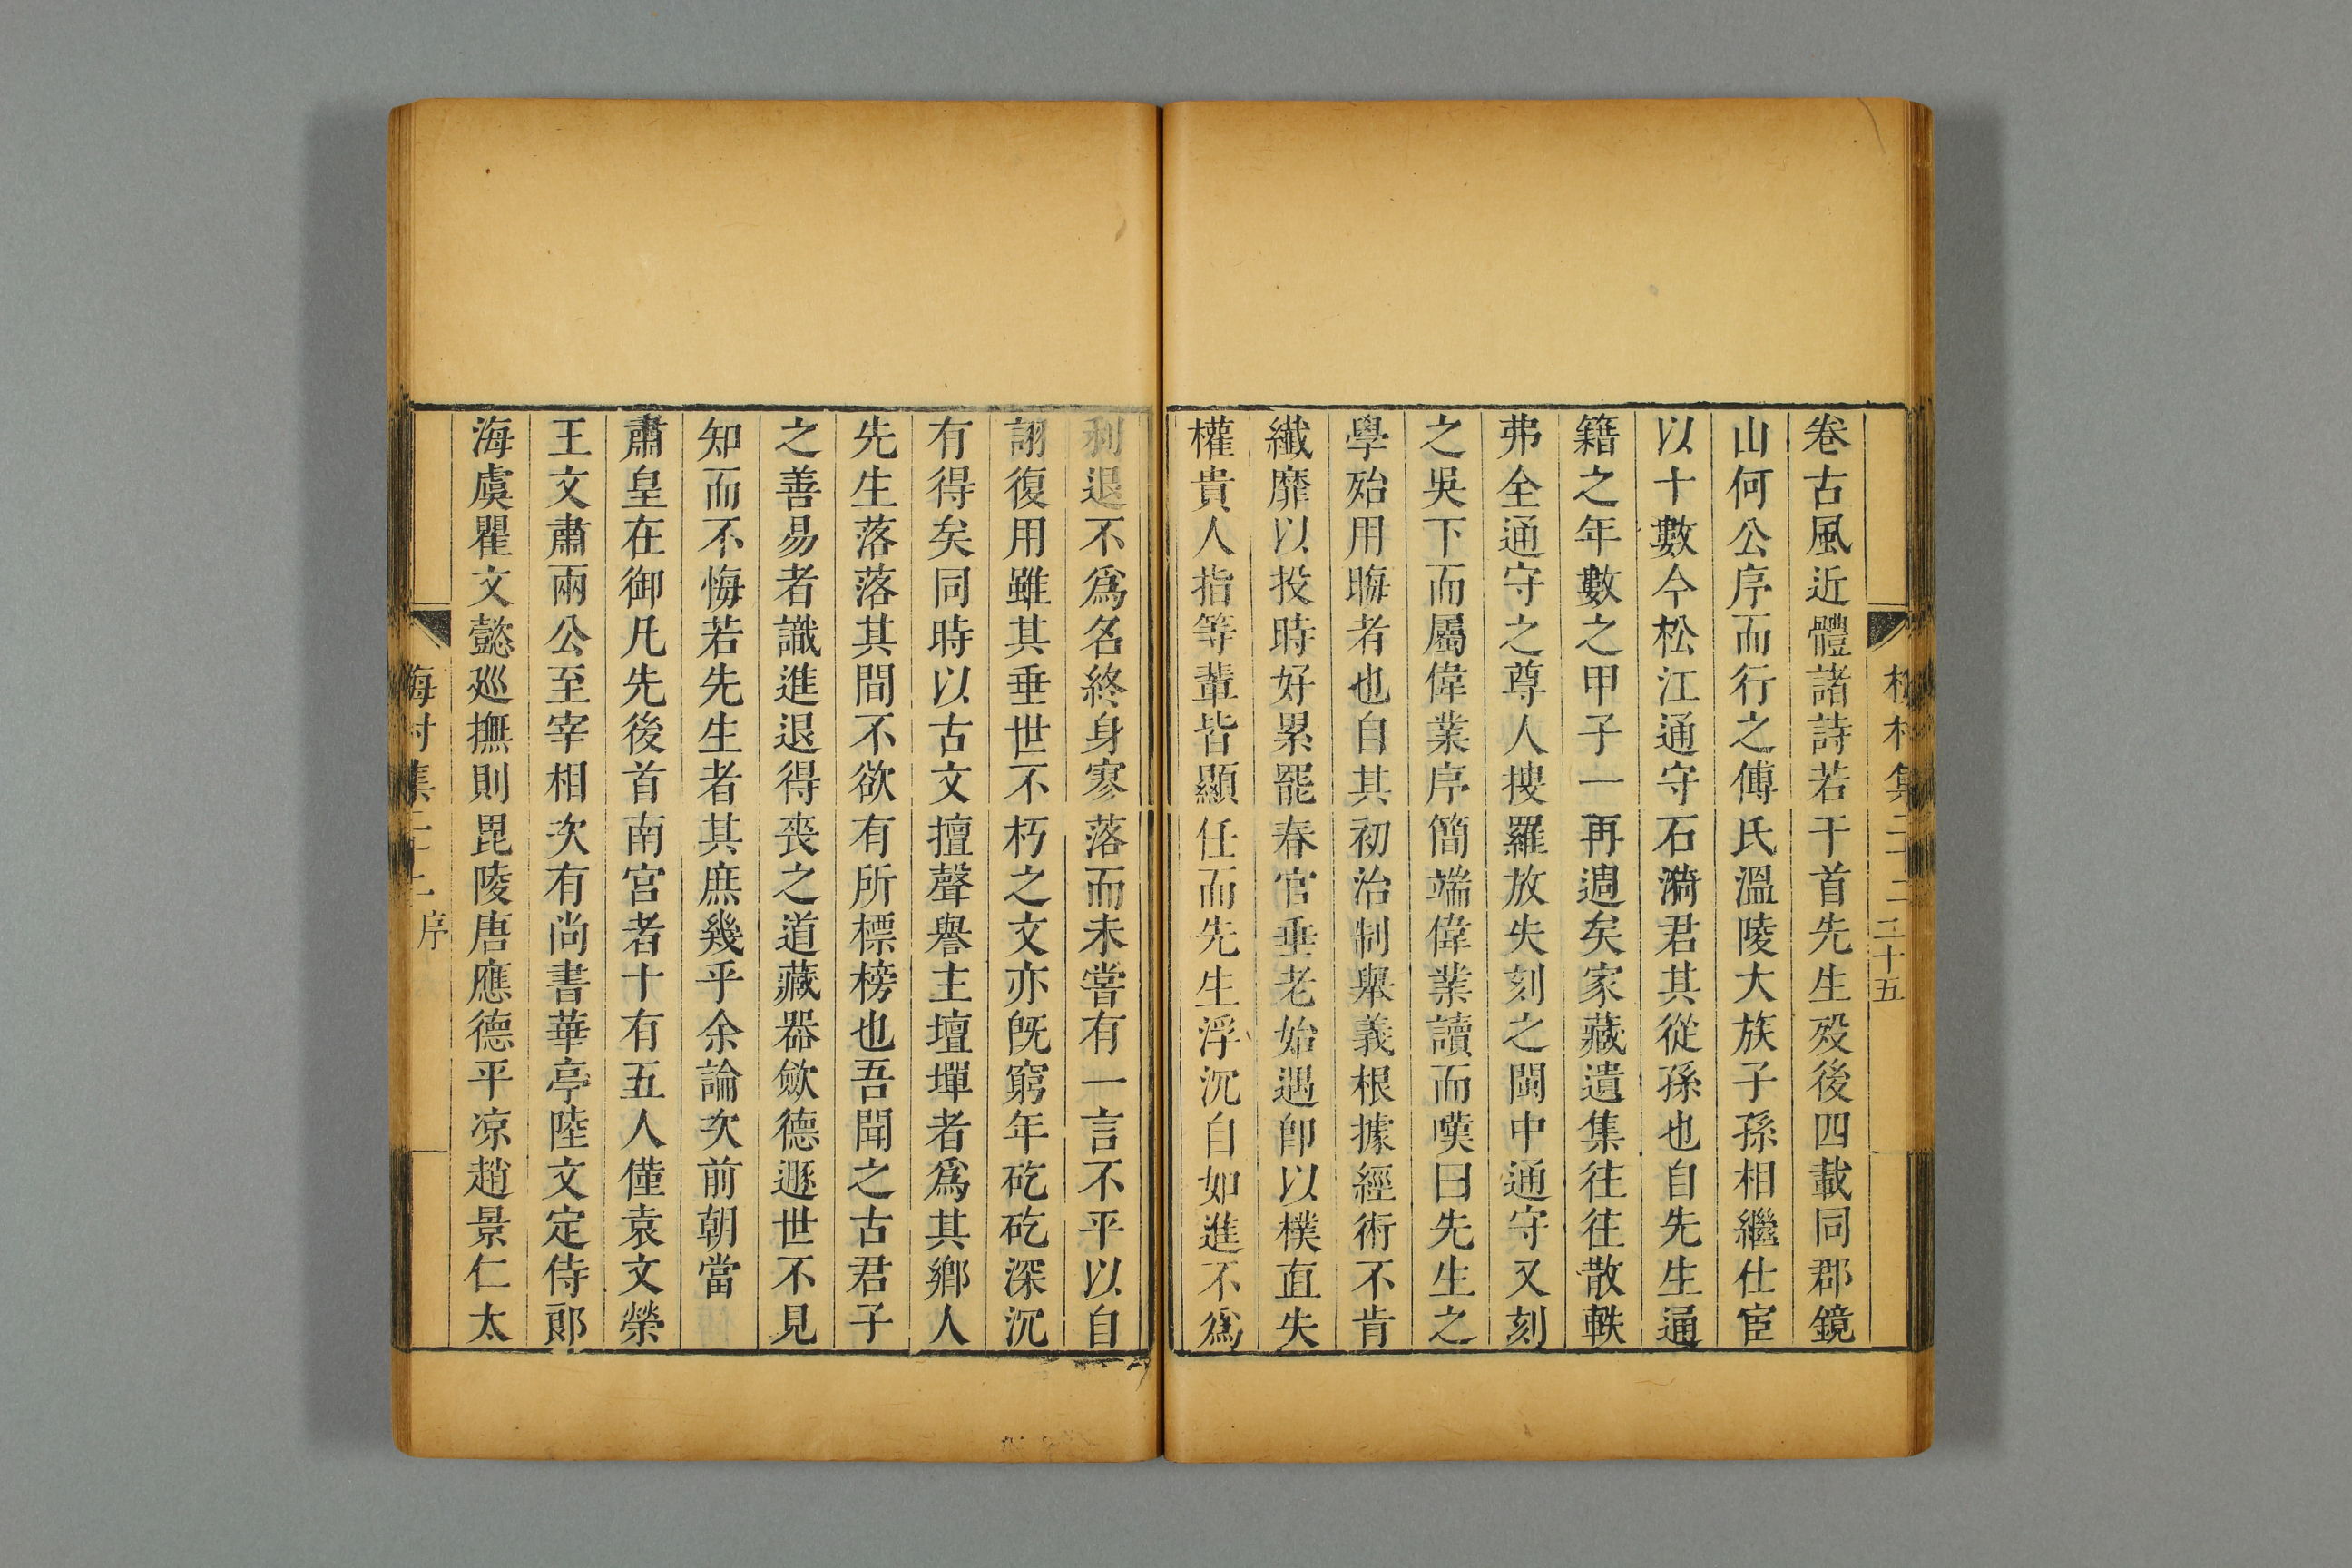 卷古風近體諸詩若干首先生殁後四載同郡鏡
山何公序而行之傅氏溫陵大族子孫相繼仕宦
以十數今松江通守石漪君其從孫也自先生通
籍之年數之甲子一再週矣家藏遺集往往散軼
弗全通守之尊人搜羅放失刻之閩中通守又刻
之吳下而屬偉業序簡端偉業讀而嘆曰先生之
學殆用晦者也自其初治制舉義根據經術不肯
纖靡以投時好累罷春官垂老始遇卽以樸直失
權貴人指等輩皆顯任而先生浮沉自如進不爲
利退不爲名終身寒落而未嘗有一言不平以自
詡復用雖其垂世不朽之文亦旣窮年矻矻深沉
有得矣同時以古文擅聲譽主壇墠者爲其鄉人
先生落落其間不欲有所標榜也吾聞之古君子
之善易者識進退得喪之道藏器歛德遯世不見
知而不悔若先生者其庶幾乎余論次前朝當
肅皇在御凡先後首南宮者十有五人僅袁文榮
王文肅兩公至宰相次有尚書華亭陸文定侍郞
海虞瞿文懿廵撫則毘陵唐應德平凉趙景仁太
序